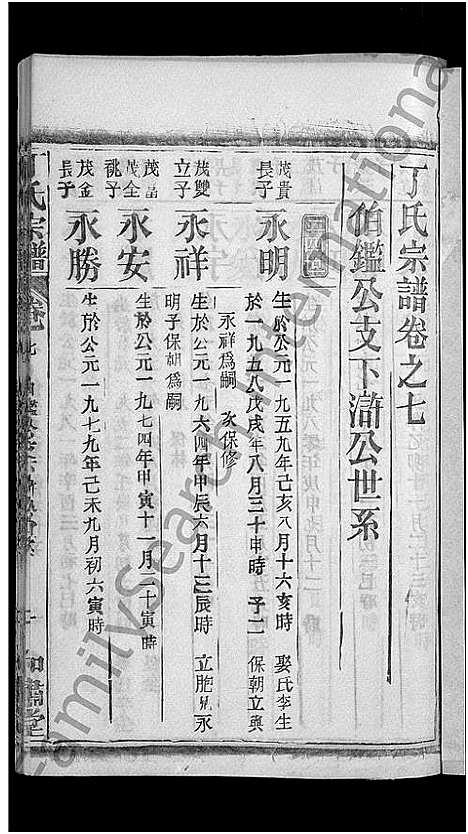 丁氏宗譜卷之七
伯鑑公支下滸公世系
茂貴
長子
永明
生於公元一九五九年己亥八月十六亥時 娶氏李生
於一九五八戊戌年八月三十申時 子二 保朝立與
永祥爲嗣 次保修
茂雙
立子
永祥
生於公元一九六四年甲辰六月十三辰時 立胞兄永
明子保朝爲嗣
茂全
祧子
永安
生於公元一九七四年甲寅十一月二十寅時
茂金
長子
永勝
生於公元一九七九年己未九月初六寅時
丁氏宗譜
卷七
FamilySearch International